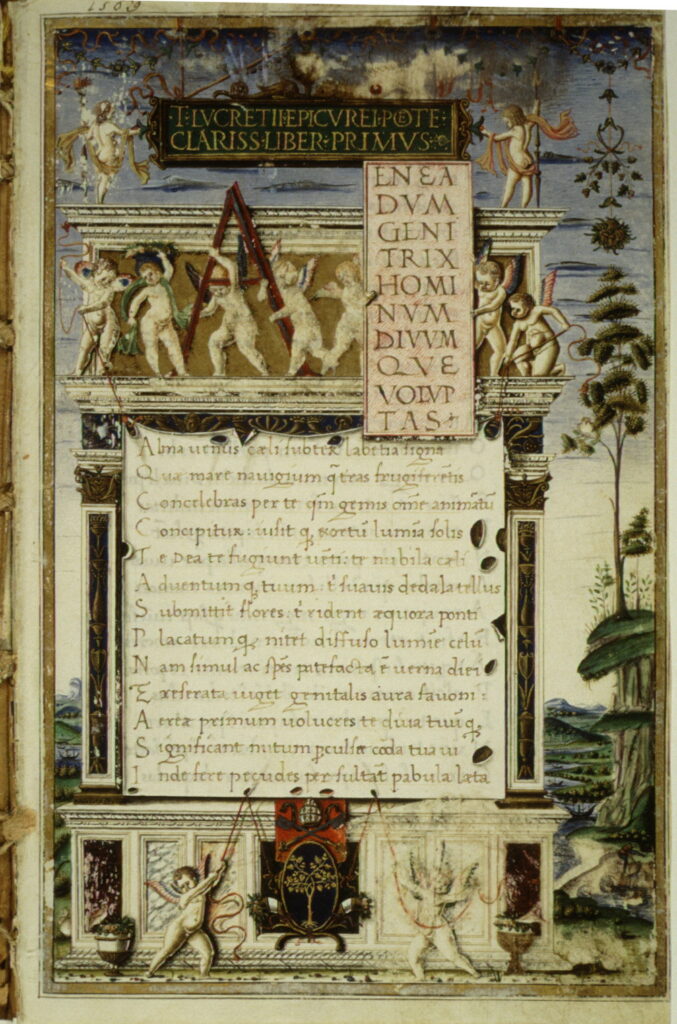 1503
T·LVCRETII·EPICVREI·POETE·
CLARISS·LIBER·PRIMVS·
A
ENEA
DVM
GENI
TRIX
HOMI
NVM
DIVVM
QVE
VOLVP
TAS
Alma uenus cæli subter labentia signa
Quæ mare nauigium q̄ tras frugiferētis
Concelebras per te qm̄ genus om̄e animātū
Concipitur: uisit q̨ exortū lumīa solis
Te Dea te fugiunt uēti: te nubila cæli
Aduentum q̨ tuum: t' suauis dedala tellus
Submittit flores: t' rident æquora ponti
Placatum q̨ nitet diffuso lumīe celū
Nam simul ac spēs patefacta ē uerna diei
Exeserata uiget genitalis aura fauoni:
Aereæ primum uolucres te diua tuū q̨
Significant initum pculsæ corda tua ui
Inde fere pecudes per sultāt pabula læta